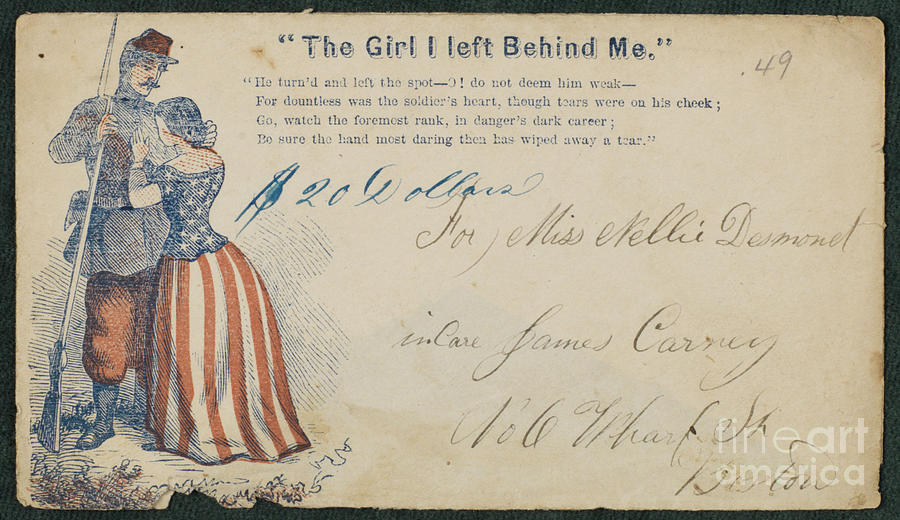 "The Girl I left Behind Me."
.49
"He turn'd and left the spot—O! do not deem him weak—
For dountless was the soldier's heart, though tears were on his cheek;
Go, watch the foremost rank, in danger's dark career;
Be sure the hand most daring then has wiped away a tear."
$20 Dollars
For, Miss Nellie Desmond
in Care James Carney
No 6 Wharf St
Boston
fine art
america